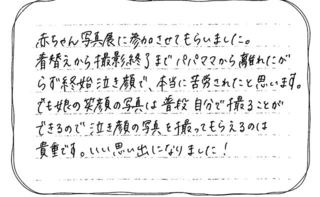 赤ちゃん写真展に参加させてもらいました。
着替えから撮影終了までパパママから離れたが
らず終始泣き顔で、本当に苦労されたと思います。
でも娘の笑顔の写真は普段自分で撮ることが
できるので泣き顔の写真を撮ってもらえるのは
貴重です。いい思い出になりました!